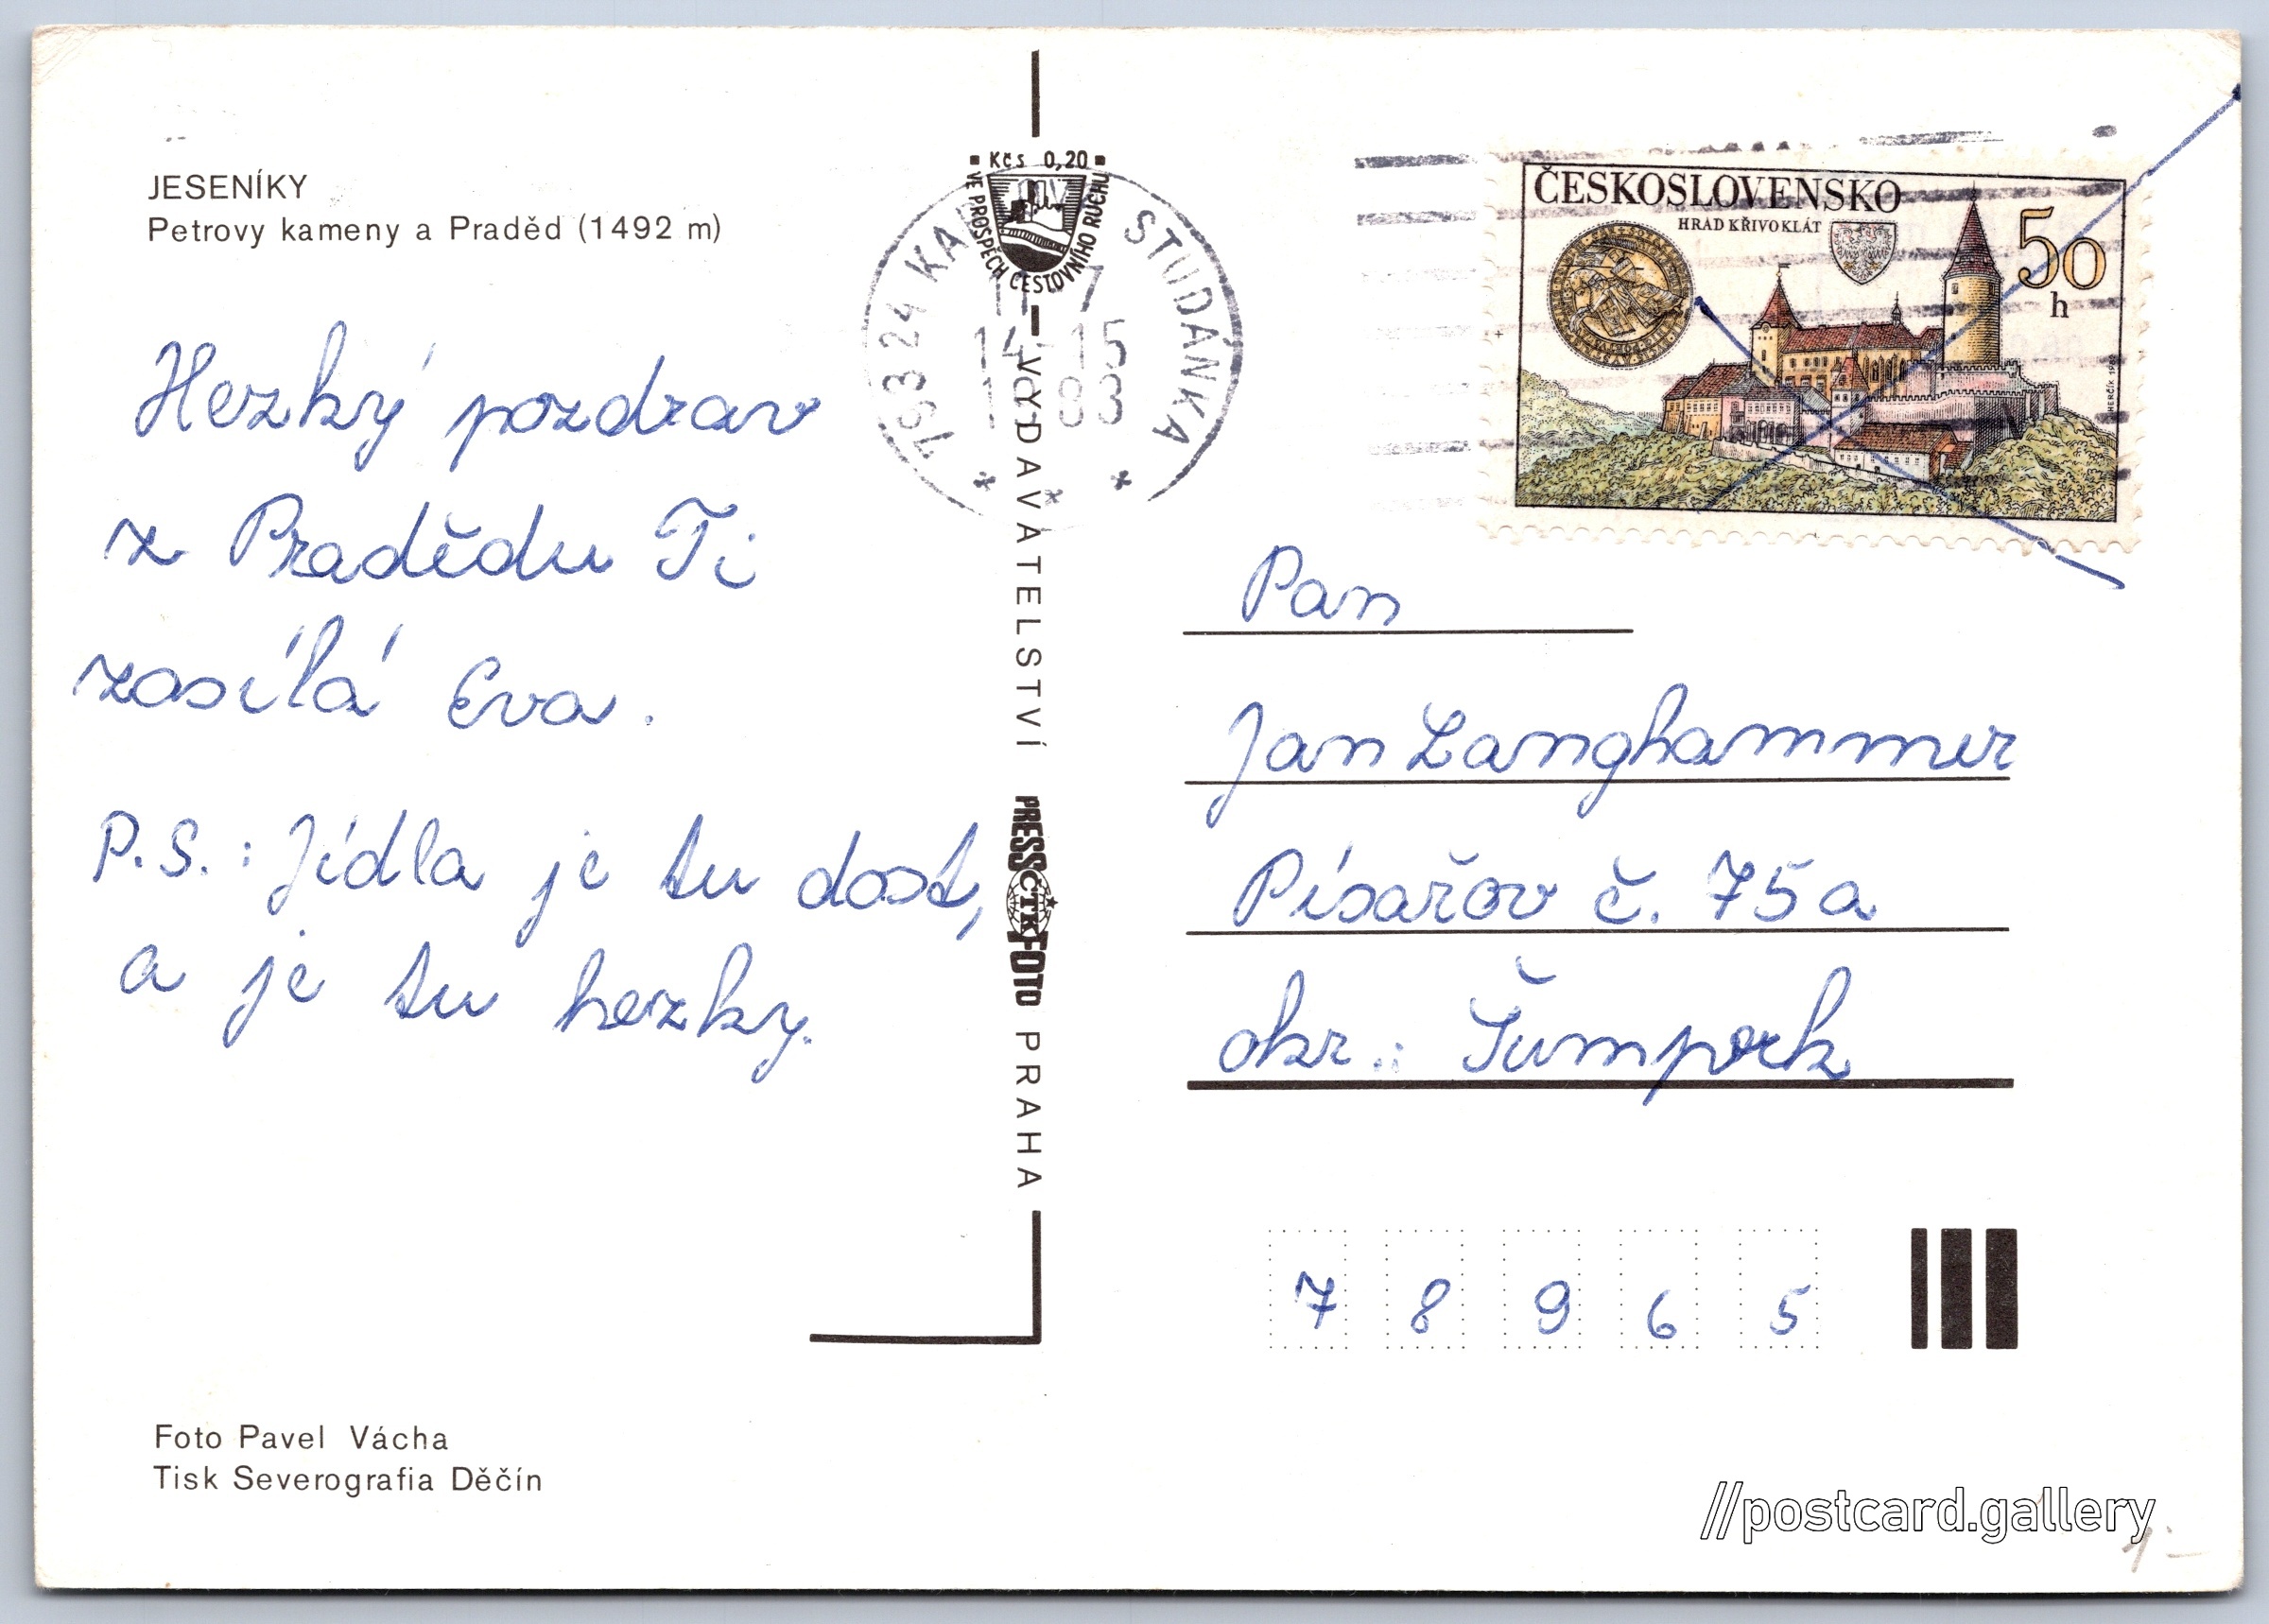 JESENÍKY
Petrovy kameny a Praděd (1492 m)
Hezký pozdrav
z Pradědu Ti
zasílá Eva.
P.S.: Jídla je tu dost,
a je tu hezky.
Foto Pavel Vácha
Tisk Severografia Děčín
Kčs 0,20
VE PROSPĚCH CESTOVNÍHO RUCHU
VYDAVATELSTVÍ PRESSFOTO PRAHA
ČTK
793 24 KA STUDÁNKA
15
83
ČESKOSLOVENSKO
HRAD KŘIVOKLÁT
50
h
Pan
Jan Langhammer
Písařov č. 75a
okr.: Šumperk
7 8 9 6 5
//postcard.gallery
1-